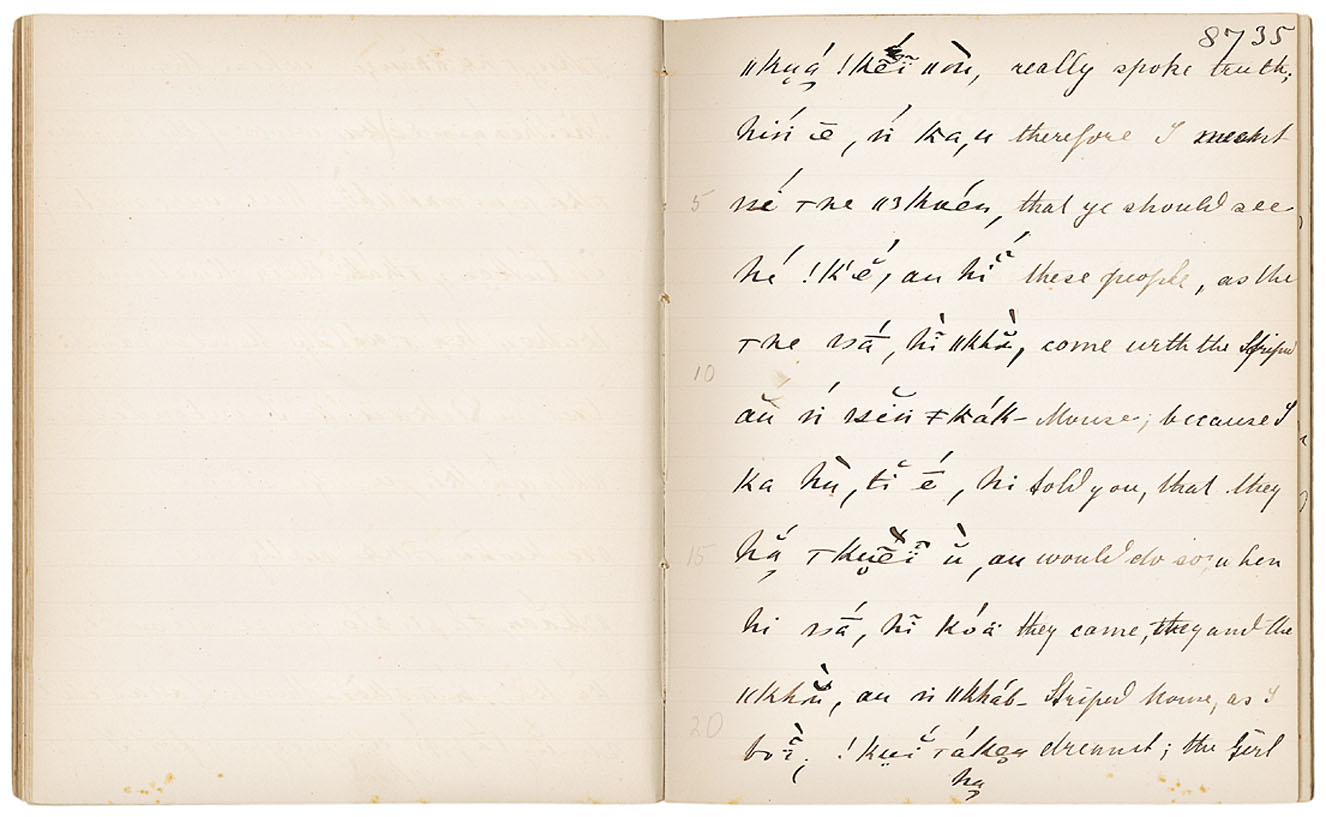 8735
"kụá !kéĩ "òn, really spoke truth;
hiń ē, ń ka, u therefore I meant
né ⊤ne "ɜkoén, that ye should see
hé !k'ĕ, au hĩ́ these people, as the
⊤ne sā́, hĩ "khù̆, come with the Striped
ău ń siń ǂkák- Mouse; because I
ka hù, tĭ ḗ, hi told you, that they
hắ ⊤kụ̄ĕĩ ù̆, au would do so, when
hi sā́, hĩ kóä they came, they and the
"khù̆, au ń "kháb- Striped Mouse, as I
boĩ̀; !kụĭ ⊤áken dreamt; the Girl
ha
5
10
15
20